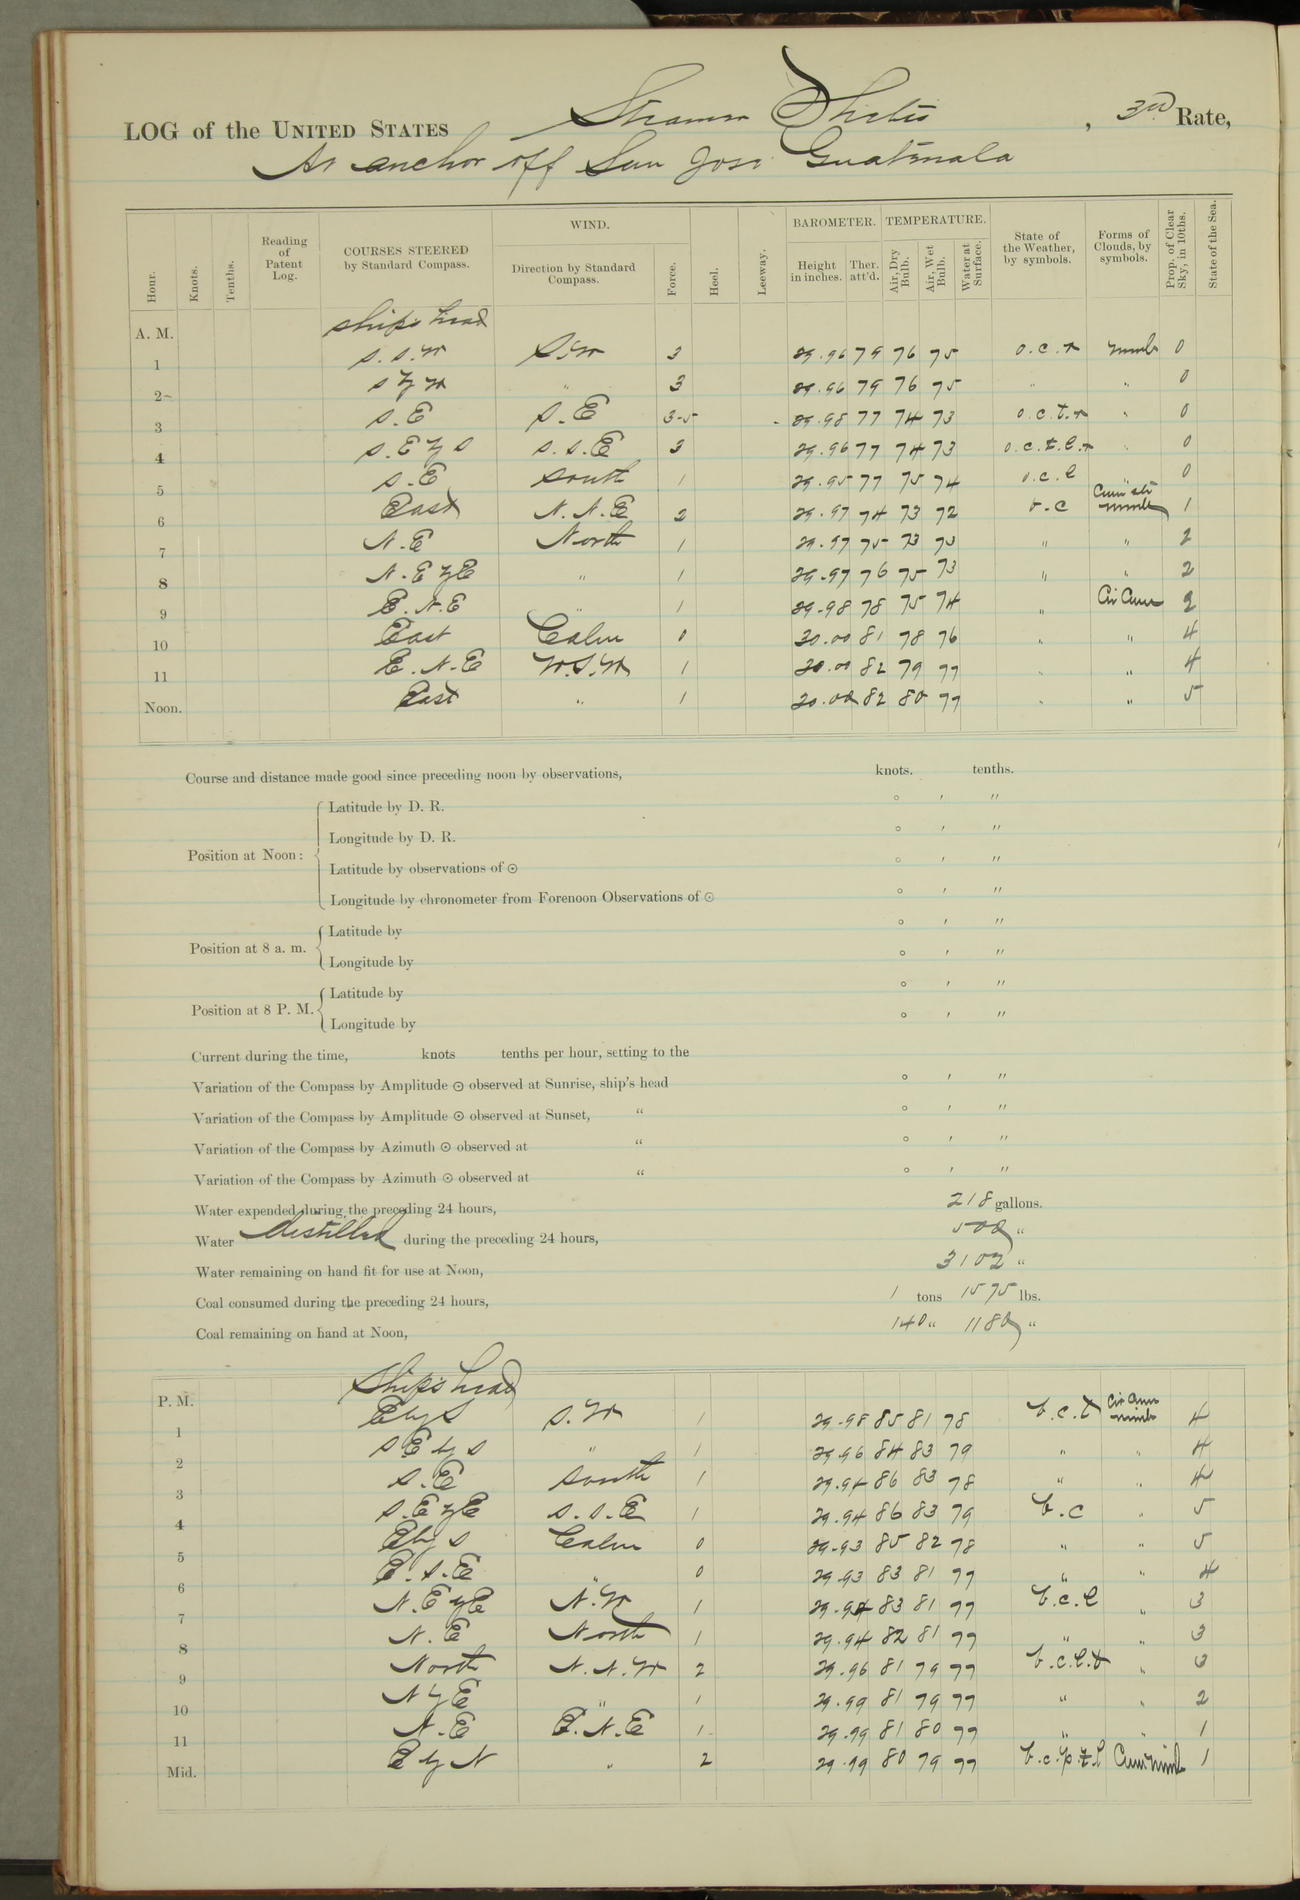 LOG of the UNITED STATES Steamer Thetis, 3rd Rate,
At anchor off San José Guatemala
Hour. Knots. Tenths. Reading of Patent Log. COURSES STEERED by Standard Compass. WIND. Direction by Standard Compass. Force. Heel. Leeway. BAROMETER. Height in inches. Ther. att'd. TEMPERATURE. Air, Dry Bulb. Air, Wet Bulb. Water at Surface. State of the Weather, by symbols. Forms of Clouds, by symbols. Prop. of Clear Sky, in 10ths. State of the Sea.
A. M. ship's head
1 S.S.W S.W 3 29.96 79 76 75 o.c.r Nimb 0
2 S y W " 3 29.96 79 76 75 " " 0
3 S.E S.E 3-5 29.98 77 74 73 o.c.t.r " 0
4 S.E y S S.S.E 3 29.96 77 74 73 o.c.t.l.r " 0
5 S.E South 1 29.95 77 75 74 o.c.l " 0
6 East N.N.E 2 29.97 74 73 72 b.c Cum str nimb 1
7 N.E North 1 29.97 75 73 73 " " 2
8 N.E y E " 1 29.97 76 75 73 " " 2
9 E.N.E " 1 29.98 78 75 74 " Cir Cum 2
10 East Calm 0 30.00 81 78 76 " " 4
11 E.N.E W.S.W 1 30.00 82 79 77 " " 4
Noon. East " 1 30.00 82 80 77 " " 5
Course and distance made good since preceding noon by observations, knots. tenths.
Position at Noon: Latitude by D. R. ° ′ ″
Longitude by D. R. ° ′ ″
Latitude by observations of ☉ ° ′ ″
Longitude by chronometer from Forenoon Observations of ☉ ° ′ ″
Position at 8 a. m. Latitude by ° ′ ″
Longitude by ° ′ ″
Position at 8 P. M. Latitude by ° ′ ″
Longitude by ° ′ ″
Current during the time, knots tenths per hour, setting to the
Variation of the Compass by Amplitude ☉ observed at Sunrise, ship's head ° ′ ″
Variation of the Compass by Amplitude ☉ observed at Sunset, " ° ′ ″
Variation of the Compass by Azimuth ☉ observed at " ° ′ ″
Variation of the Compass by Azimuth ☉ observed at " ° ′ ″
Water expended during the preceding 24 hours, 218 gallons.
Water distilled during the preceding 24 hours, 500 "
Water remaining on hand fit for use at Noon, 3102 "
Coal consumed during the preceding 24 hours, 1 tons 1575 lbs.
Coal remaining on hand at Noon, 140 " 1180 "
P. M. Ship's head
1 E by S S.W 1 29.98 85 81 78 b.c.t Cir Cum nimb 4
2 S E by S " 1 29.96 84 83 79 " " 4
3 S.E South 1 29.94 86 83 78 " " 4
4 S.E y E S.S.E 1 29.94 86 83 79 b.c " 5
5 E by S Calm 0 29.93 85 82 78 " " 5
6 E.S.E " 0 29.93 83 81 77 " " 4
7 N.E y E N.W 1 29.94 83 81 77 b.c.l " 3
8 N.E North 1 29.94 82 81 77 " " 3
9 North N.N.W 2 29.96 81 79 77 b.c.l.t " 3
10 N y E " 1 29.99 81 79 77 " " 2
11 N.E E.N.E 1 29.99 81 80 77 " " 1
Mid. E y N " 2 29.99 80 79 77 b.c.p.t.l Cum nimb 1